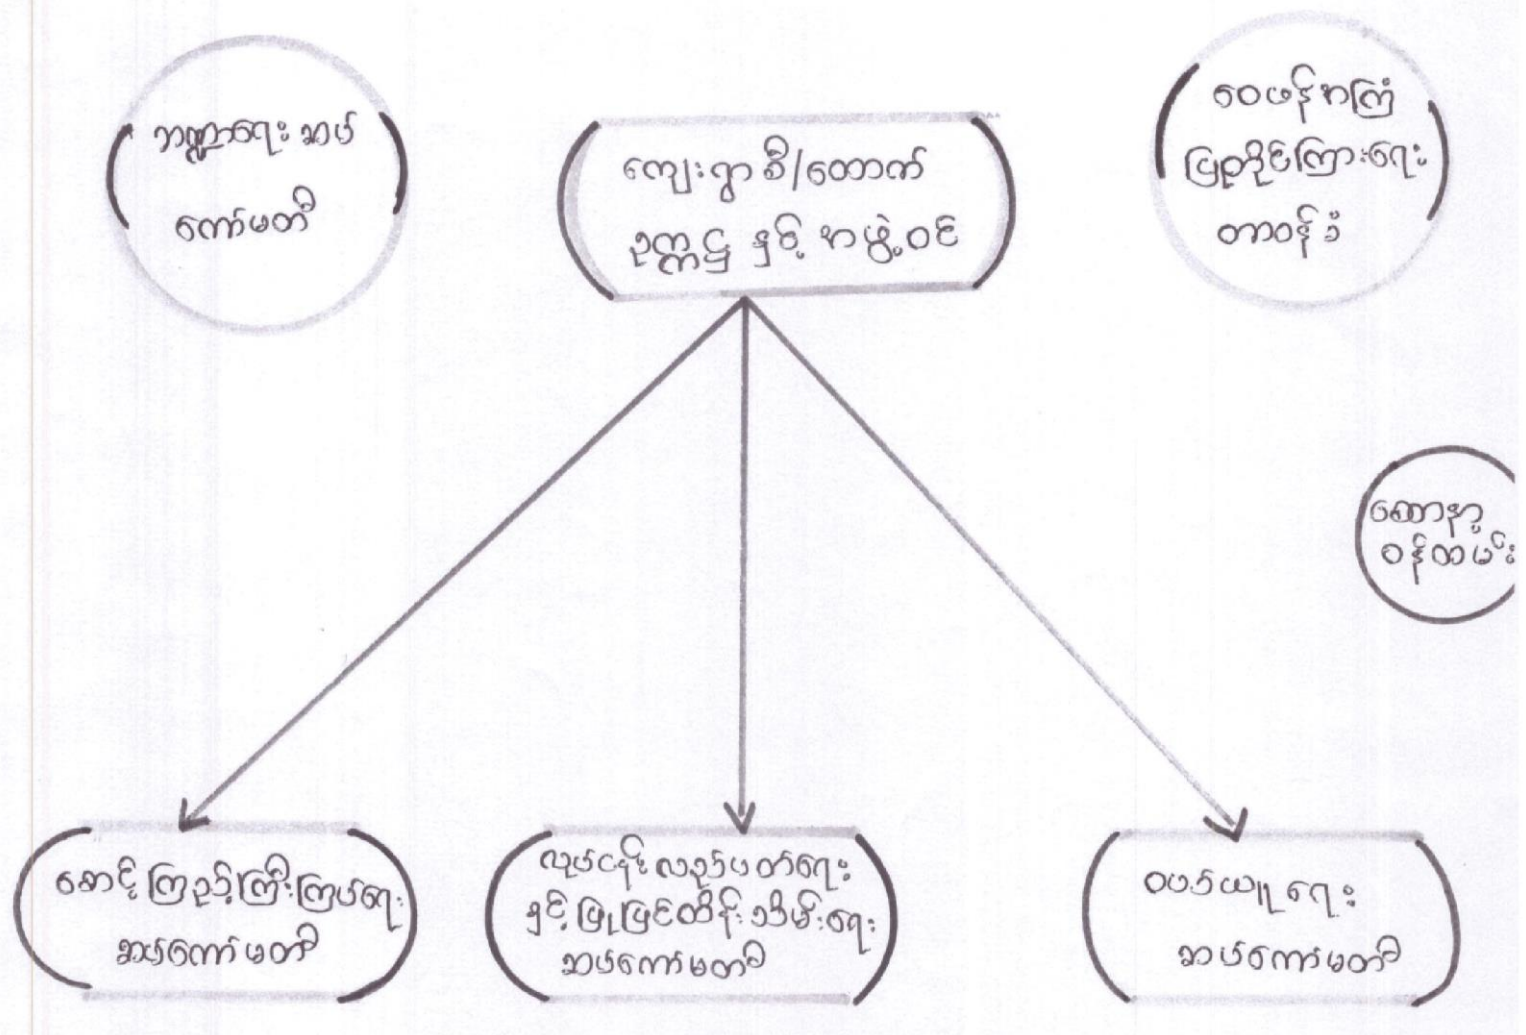 ဘဏ္ဍာရေး ဆပ်
ကော်မတီ
ကျေးရွာ စီ/ထောက်
ဥက္ကဋ္ဌ နှင့် အဖွဲ့ဝင်
ဝေဖန်အကြံ
ပြုတိုင်ကြားရေး
တာဝန်ခံ
ဆောနာ့
ဝန်ထမ်း
စောင့်ကြည့်ကြီးကြပ်ရေး
ဆပ်ကော်မတီ
လုပ်ငန်းလည်ပတ်ရေး
နှင့် ပြုပြင်ထိန်းသိမ်းရေး
ဆပ်ကော်မတီ
ဝယ်ယူရေး
ဆပ်ကော်မတီ